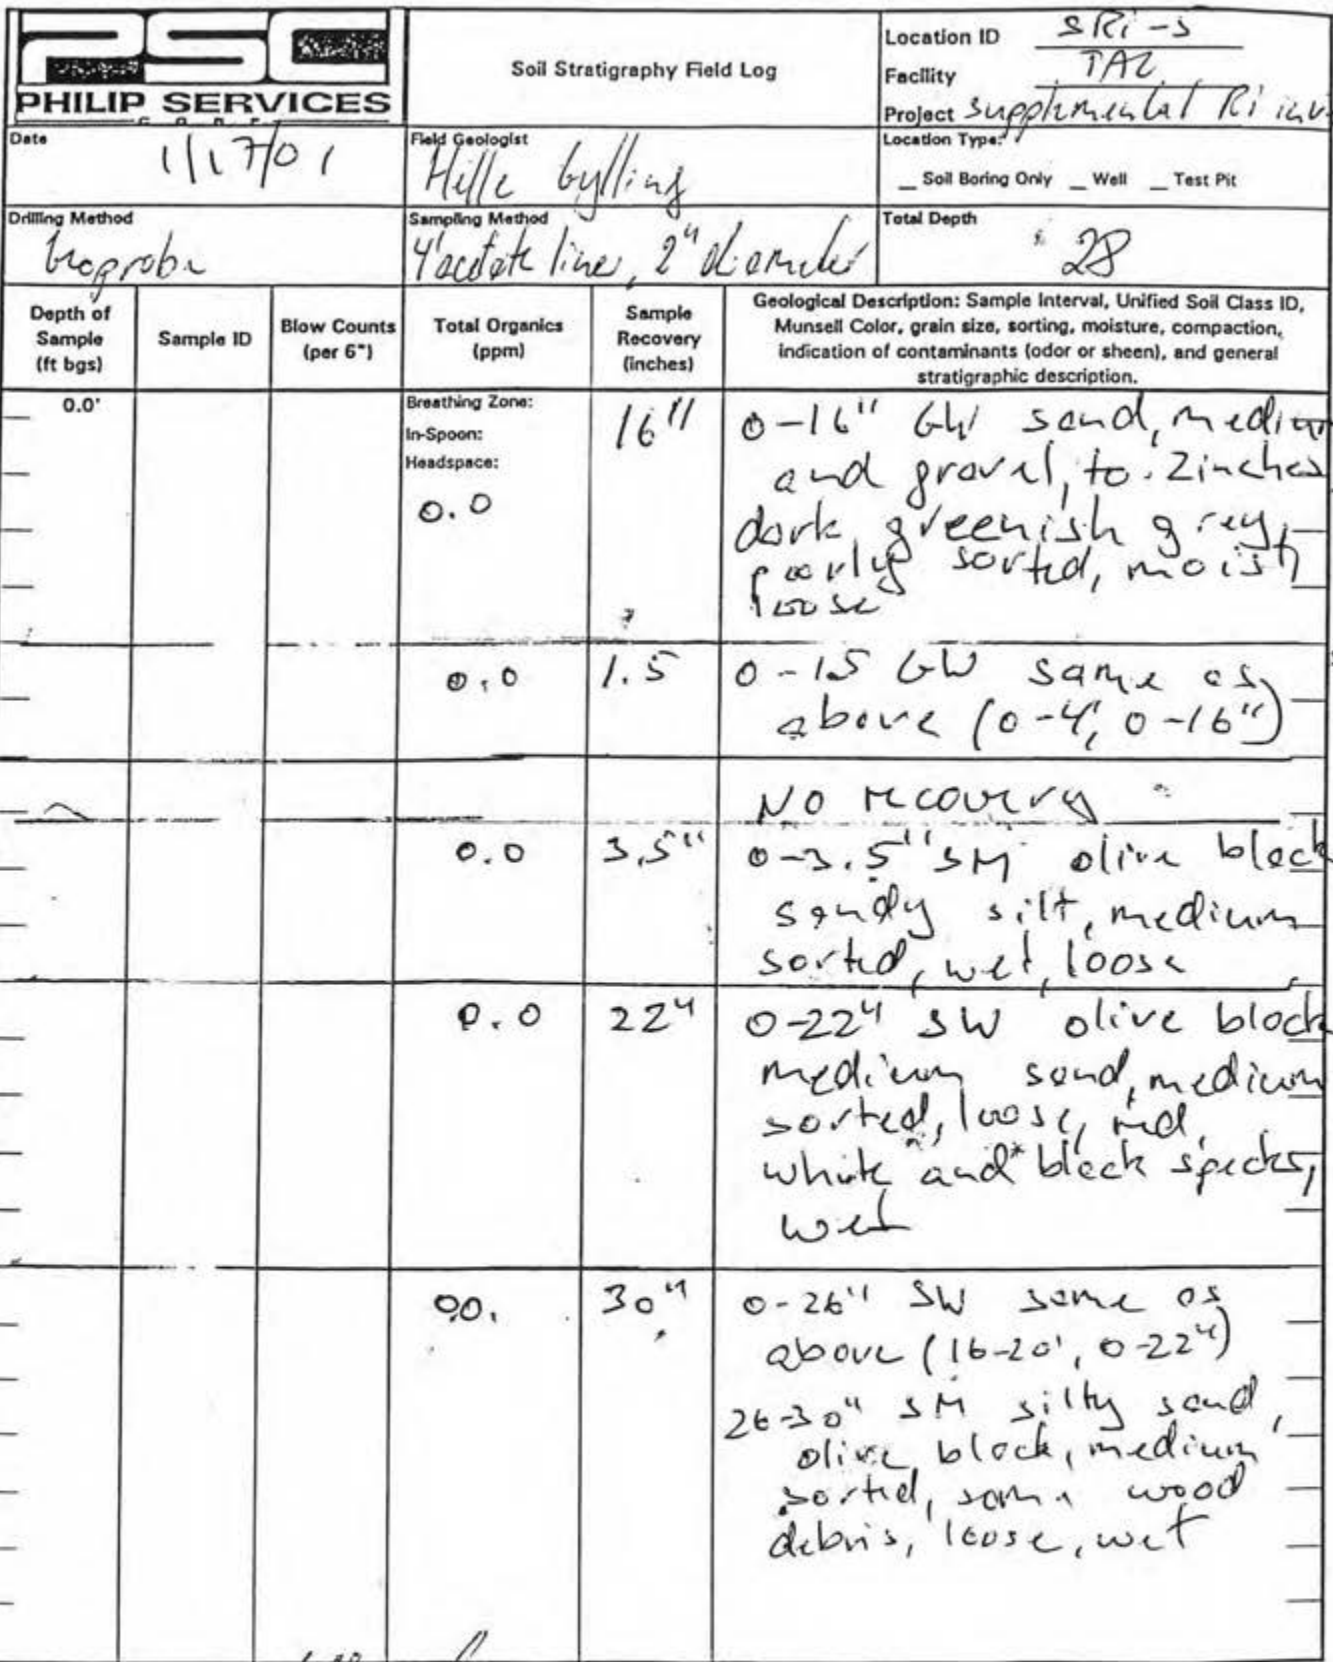 PSC
PHILIP SERVICES
CORP
Soil Stratigraphy Field Log
Location ID SRi-5
Facility TAC
Project Supplmental Ri inv
Date 1/17/01
Field Geologist Hille Gylling
Location Type:
_ Soil Boring Only _ Well _ Test Pit
Drilling Method
Geoprobe
Sampling Method
4' acetate liner, 2" diameter
Total Depth
28
Depth of Sample (ft bgs)
Sample ID
Blow Counts (per 6")
Total Organics (ppm)
Sample Recovery (inches)
Geological Description: Sample Interval, Unified Soil Class ID,
Munsell Color, grain size, sorting, moisture, compaction,
indication of contaminants (odor or sheen), and general
stratigraphic description.
0.0'
Breathing Zone:
In-Spoon:
Headspace:
0.0
16"
0-16" GW sand, medium
and gravel, to 2 inches
dark greenish grey,
poorly sorted, moist,
loose
0.0 1.5 0-1.5 GW same as
above (0-4', 0-16")
No recovery
0.0 3.5" 0-3.5" SM olive black
sandy silt, medium
sorted, wet, loose
0.0 22" 0-22" SW olive black
medium sand, medium
sorted, loose, red,
white and black specks,
wet
00. 30" 0-26" SW same as
above (16-20', 0-22")
26-30" SM silty sand,
olive black, medium
sorted, some wood
debris, loose, wet